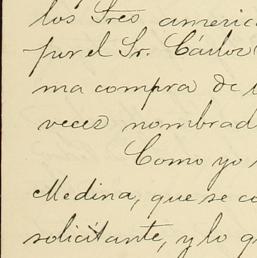 los Tres americ
por el Sr. Cárlos
ma compra de
veces nombrad
Como yo
Medina, que se co
solicitante, y lo q